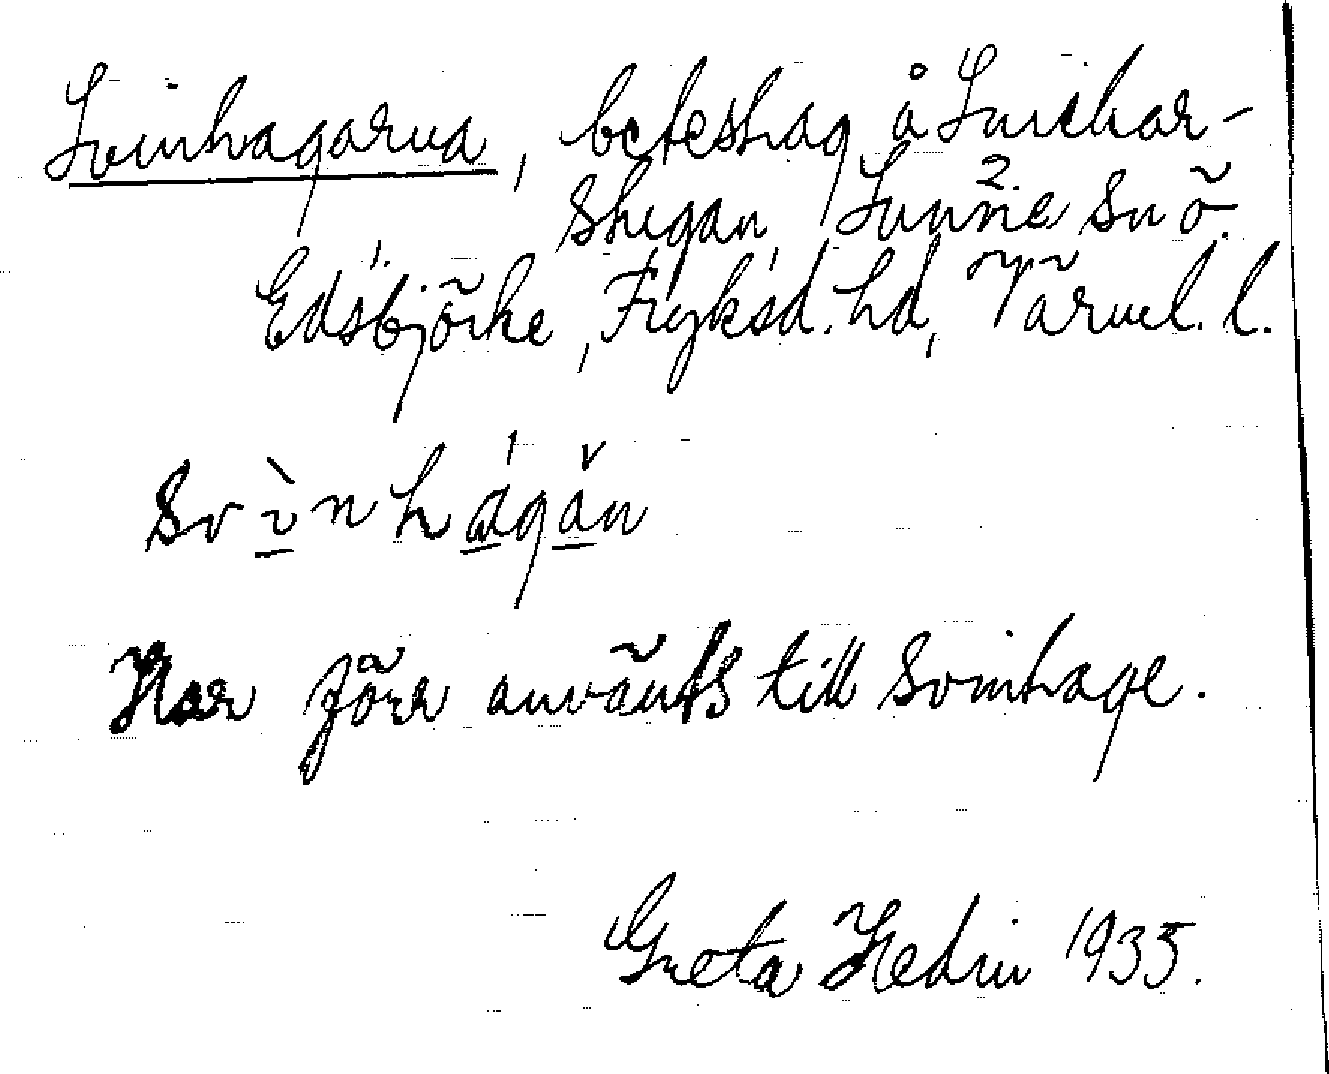 Svinhagarna, beteshag å Snickar-
skogan, Sunne sn ö.
2.
1.
Edsbjörke, Fryksd. hd, Värml. l.
svìnhágăn
Har förr använts till svinhage.
Greta Hedin 1935.